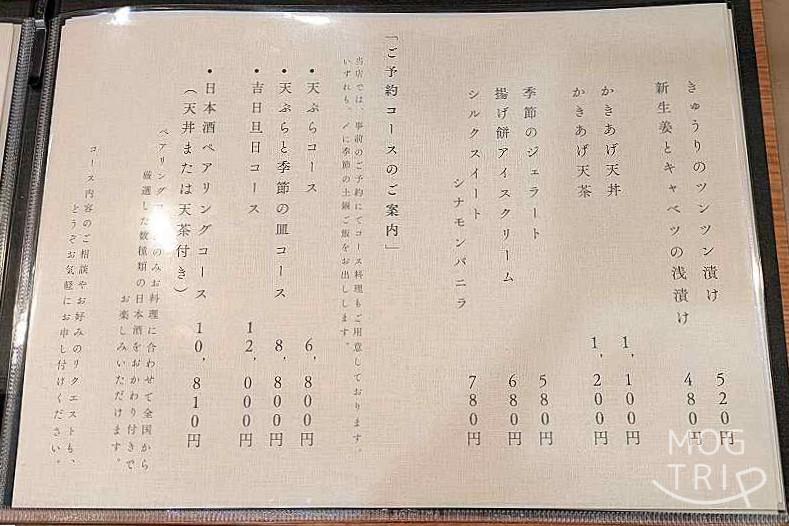 きゅうりのツンツン漬け 520円
新生姜とキャベツの浅漬け 480円
かきあげ天丼 1,100円
かきあげ天茶 1,200円
季節のジェラート 580円
揚げ餅アイスクリーム 680円
シルクスイート
シナモンバニラ 780円
「ご予約コースのご案内」
当店では、事前のご予約にてコース料理もご用意しております。
いずれも、〆に季節の土鍋ご飯をお出しします。
・天ぷらコース 6,800円
・天ぷらと季節の皿コース 8,800円
・吉日旦日コース 12,000円
・日本酒ペアリングコース 10,810円
(天丼または天茶付き)
ペアリングコースのみお料理に合わせて全国から
厳選した数種類の日本酒をおかわり付きで
お楽しみいただけます。
コース内容のご相談やお好みのリクエストも、
どうぞお気軽にお申し付けください。
MOG
TRIP